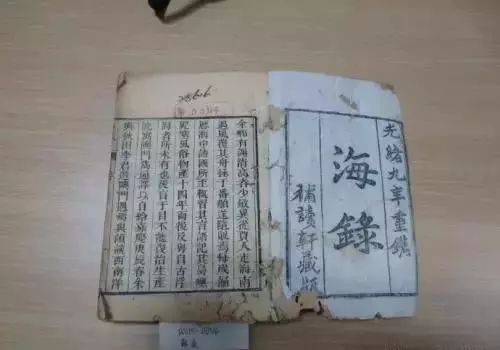 光緒九年重鐫
海錄
補讀軒藏版
余鄉有謝清高者少敏異從賈人走海南
遇風覆其舟拯于番舶遂隨販焉每歲徧
歷海中諸國所至輒習其言語記其島嶼
阨塞風俗物產十四年而後反粵自古浮
海者所未有也後盲于目不能復治生產
流寓澳門為通譯以自給嘉慶庚辰春余
與秋田李君遊澳門遇焉與傾談西南洋